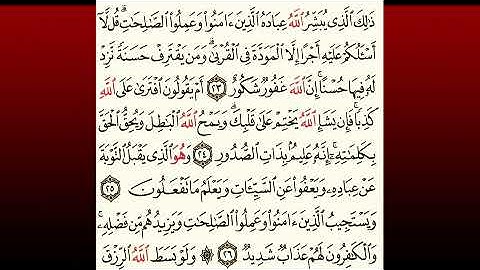 ذَٰلِكَ ٱلَّذِى يُبَشِّرُ ٱللَّهُ عِبَادَهُ ٱلَّذِينَ ءَامَنُوا۟ وَعَمِلُوا۟ ٱلصَّـٰلِحَـٰتِ ۗ قُل لَّآ
أَسْـَٔلُكُمْ عَلَيْهِ أَجْرًا إِلَّا ٱلْمَوَدَّةَ فِى ٱلْقُرْبَىٰ ۗ وَمَن يَقْتَرِفْ حَسَنَةً نَّزِدْ
لَهُۥ فِيهَا حُسْنًا ۚ إِنَّ ٱللَّهَ غَفُورٌ شَكُورٌ ٢٣ أَمْ يَقُولُونَ ٱفْتَرَىٰ عَلَى ٱللَّهِ
كَذِبًا ۖ فَإِن يَشَإِ ٱللَّهُ يَخْتِمْ عَلَىٰ قَلْبِكَ ۗ وَيَمْحُ ٱللَّهُ ٱلْبَـٰطِلَ وَيُحِقُّ ٱلْحَقَّ
بِكَلِمَـٰتِهِۦٓ ۚ إِنَّهُۥ عَلِيمٌۢ بِذَاتِ ٱلصُّدُورِ ٢٤ وَهُوَ ٱلَّذِى يَقْبَلُ ٱلتَّوْبَةَ
عَنْ عِبَادِهِۦ وَيَعْفُوا۟ عَنِ ٱلسَّيِّـَٔاتِ وَيَعْلَمُ مَا تَفْعَلُونَ
٢٥
وَيَسْتَجِيبُ ٱلَّذِينَ ءَامَنُوا۟ وَعَمِلُوا۟ ٱلصَّـٰلِحَـٰتِ وَيَزِيدُهُم مِّن فَضْلِهِۦ ۚ
وَٱلْكَـٰفِرُونَ لَهُمْ عَذَابٌ شَدِيدٌ ٢٦ ۞ وَلَوْ بَسَطَ ٱللَّهُ ٱلرِّزْقَ